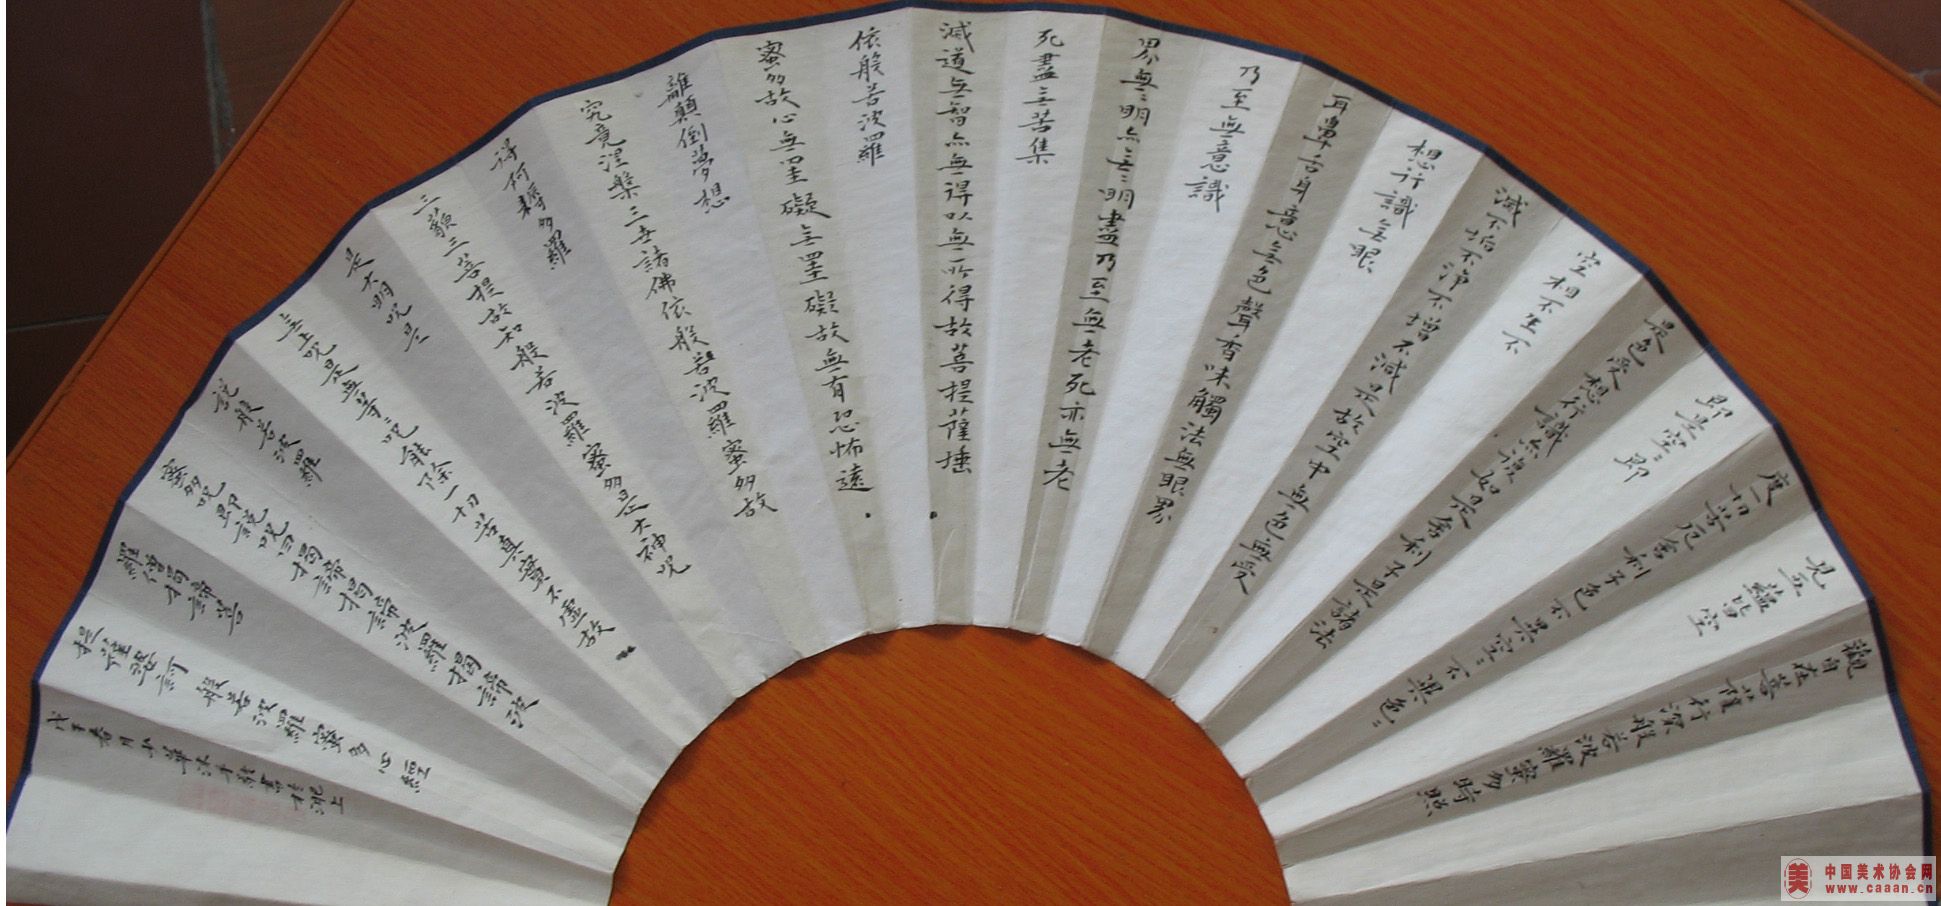 觀自在菩薩行深般若波羅蜜多時照
見五蘊皆空
度一切苦厄舍利子色不異空〻不異色〻
即是空〻即
是色受想行識亦復如是舍利子是諸法
空相不生不
滅不垢不淨不增不減是故空中無色無受
想行識無眼
耳鼻舌身意無色聲香味觸法無眼界
乃至無意識
界無〻明亦無〻明盡乃至無老死亦無老
死盡無苦集
滅道無智亦無得以無所得故菩提薩埵
依般若波羅
蜜多故心無罣礙無罣礙故無有恐怖遠
離顛倒夢想
究竟涅槃三世諸佛依般若波羅蜜多故
得阿耨多羅
三藐三菩提故知般若波羅蜜多是大神咒
是大明咒是
無上咒是無等〻咒能除一切苦真實不虛故
說般若波羅
蜜多咒即說咒曰揭諦揭諦波羅揭諦波
羅僧揭諦菩
提薩婆訶 般若波羅蜜多心經
戊子春月書於滬上
美 中国美术协会网
www.caaan.cn